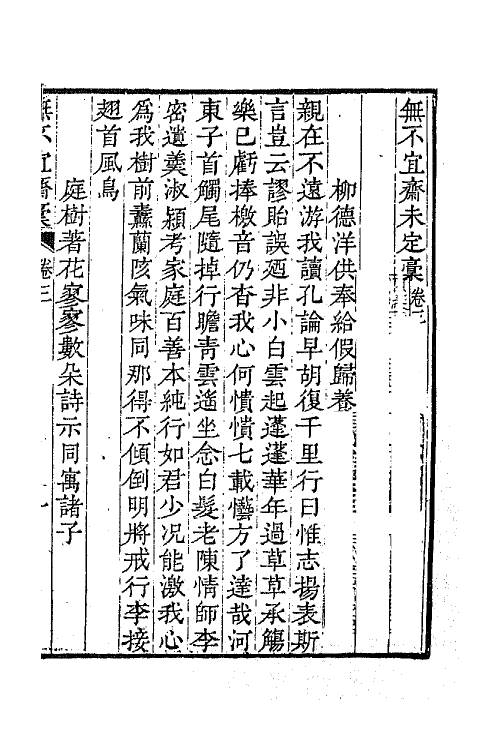 無不宜齋未定稾卷三
柳德洋供奉給假歸養
親在不遠游我讀孔論早胡復千里行曰惟志揚表斯
言豈云謬貽誤廼非小白雲起蓬蓬華年過草草承觴
樂已虧捧檄音仍杳我心何憒憒七載懺方了達哉河
東子首觸尾隨掉行瞻青雲遙坐念白髮老陳情師李
密遺羹淑潁考家庭百善本純行如君少况能激我心
爲我樹前蘛蘭陔氣味同那得不傾倒明將戒行李接
翅首風鳥
庭樹著花寥寥數朵詩示同寓諸子
無不宜齋稾
卷三
一